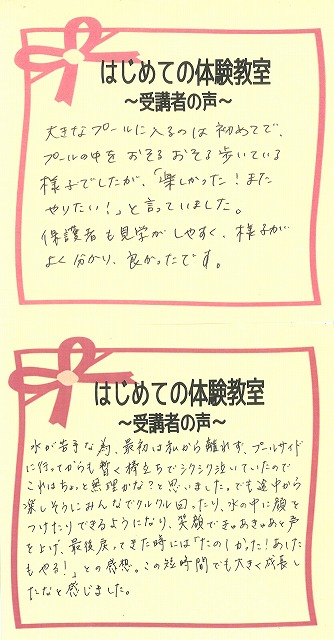 はじめての体験教室
～受講者の声～
大きなプールに入るのは初めてで、
プールの中をおそるおそる歩いている
様子でしたが、「楽しかった！また
やりたい！」と言っていました。
保護者も見学がしやすく、様子が
よく分かり、良かったです。
はじめての体験教室
～受講者の声～
水が苦手な為、最初は私から離れず、プールサイド
に行ってからも暫く棒立ちでシクシク泣いていたので
これはちょっと無理かな？と思いました。でも途中から
楽しそうにみんなでクルクル回ったり、水の中に顔を
つけたりできるようになり、笑顔できゃあきゃあと声
を上げ、最後戻ってきた時には「たのしかった！あした
もやる！」との感想。この短時間でも大きく成長し
たなと感じました。